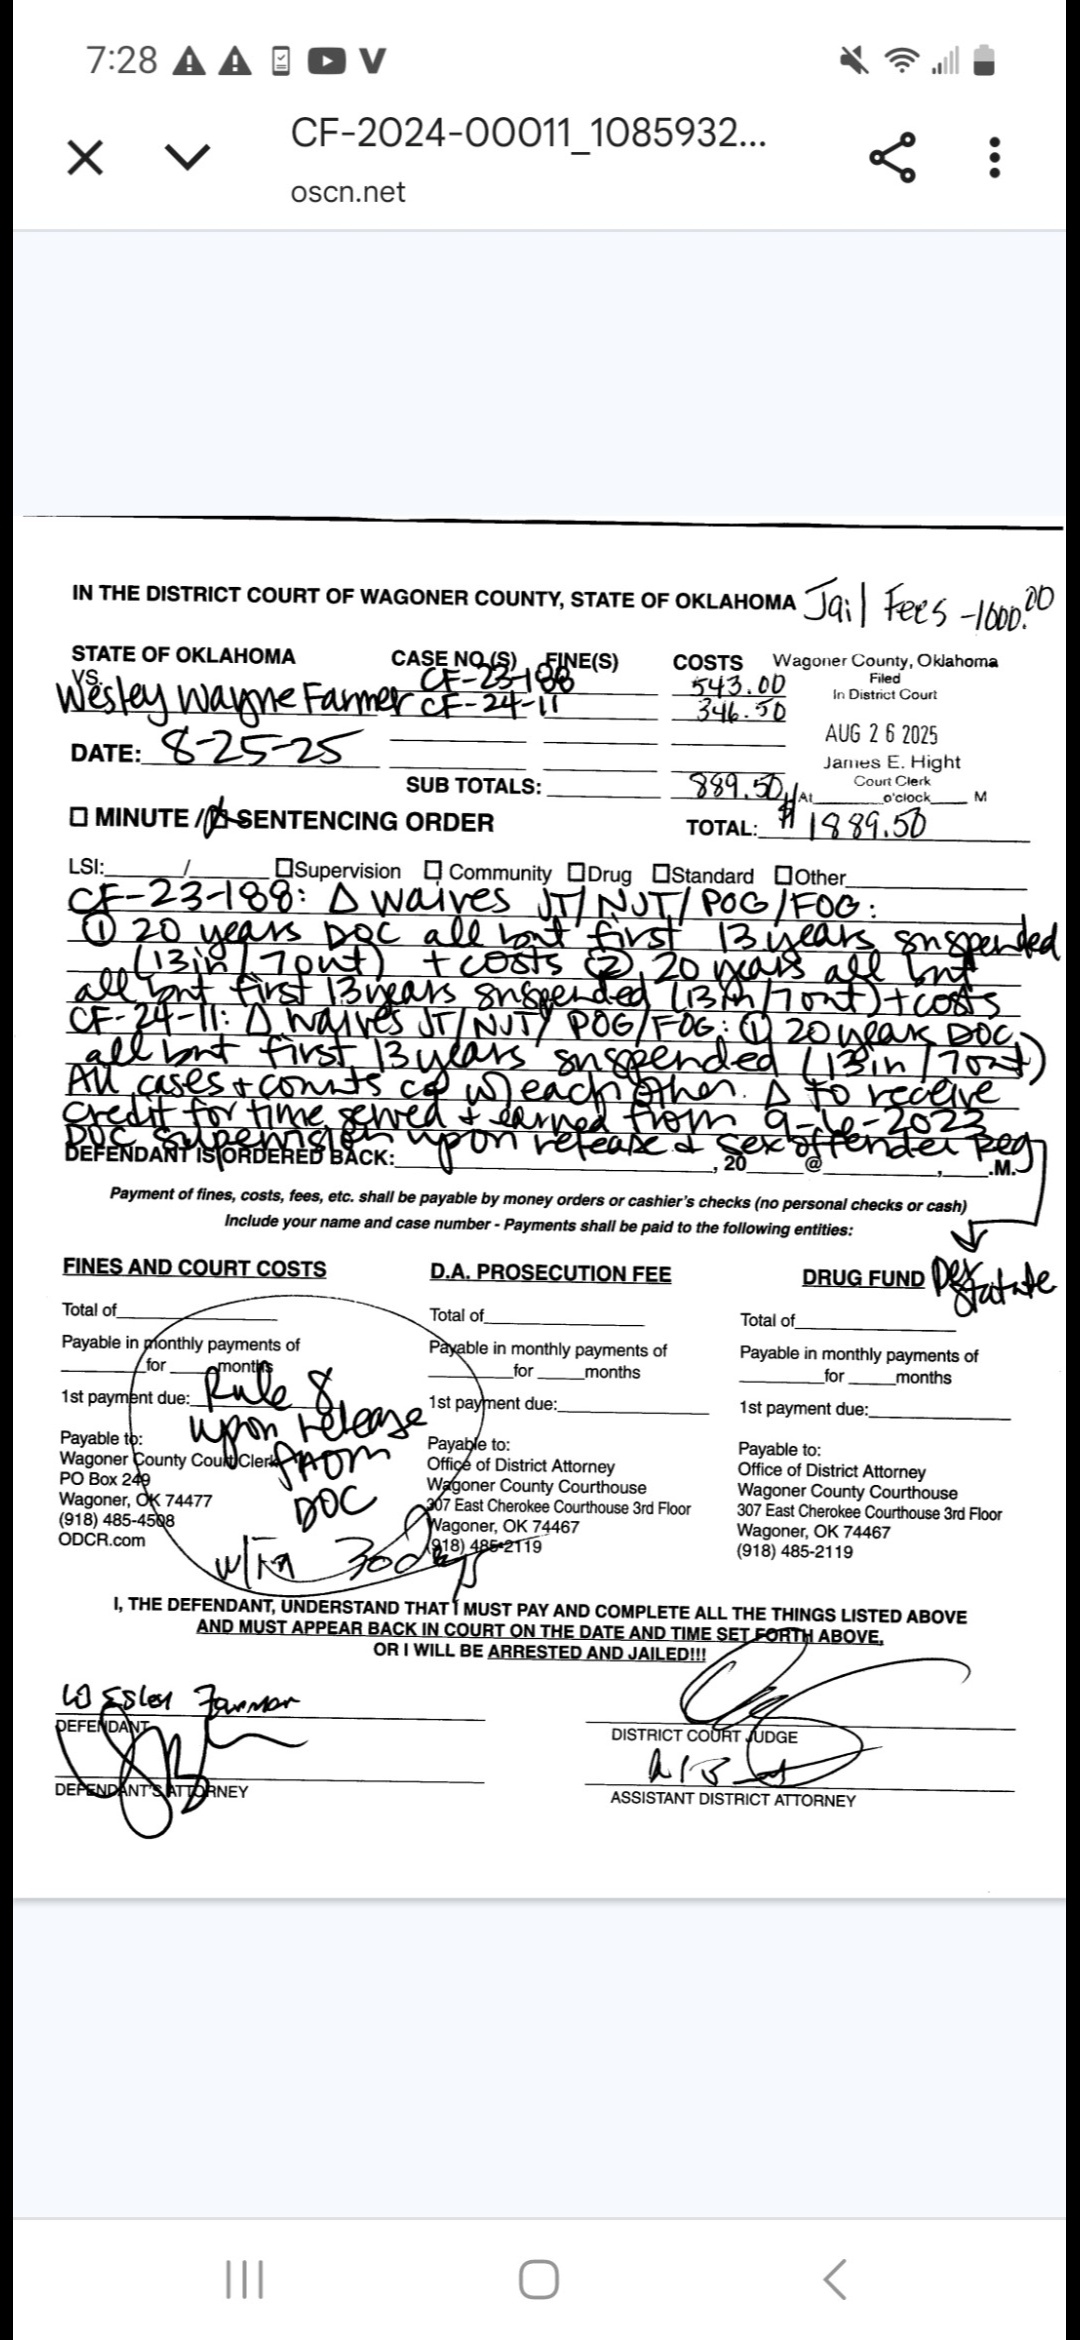 7:28
CF-2024-00011_1085932...
oscn.net
IN THE DISTRICT COURT OF WAGONER COUNTY, STATE OF OKLAHOMA Jail Fees -1000.00
STATE OF OKLAHOMA CASE NO.(S) FINE(S) COSTS Wagoner County, Oklahoma
VS. CF-23-188 543.00 Filed
Wesley Wayne Farmer CF-24-11 346.50 In District Court
DATE: 8-25-25 AUG 26 2025
James E. Hight
SUB TOTALS: 889.50 Court Clerk
At o'clock M
MINUTE / SENTENCING ORDER TOTAL: $1889.50
LSI: / Supervision Community Drug Standard Other
CF-23-188: Δ waives JT/NJT/POG/FOG:
① 20 years DOC all but first 13 years suspended
(13in/7out) + costs ② 20 years all but
all but first 13 years suspended (13in/7out) + costs
CF-24-11: Δ waives JT/NJT/POG/FOG: ① 20 years DOC
all but first 13 years suspended (13in/7out)
All cases + counts cc w/each other. Δ to receive
credit for time served + earned from 2023
DOC supervision upon release & sex offender Reg
DEFENDANT IS ORDERED BACK: , 20 @ , .M.
Payment of fines, costs, fees, etc. shall be payable by money orders or cashier's checks (no personal checks or cash)
Include your name and case number - Payments shall be paid to the following entities:
per statute
FINES AND COURT COSTS
Total of
Payable in monthly payments of
for months
1st payment due:
Payable to:
Wagoner County Court Clerk
PO Box 249
Wagoner, OK 74477
(918) 485-4508
ODCR.com
Rule 8
upon release
from
DOC
w/in 30 days
D.A. PROSECUTION FEE
Total of
Payable in monthly payments of
for months
1st payment due:
Payable to:
Office of District Attorney
Wagoner County Courthouse
307 East Cherokee Courthouse 3rd Floor
Wagoner, OK 74467
(918) 485-2119
DRUG FUND
Total of
Payable in monthly payments of
for months
1st payment due:
Payable to:
Office of District Attorney
Wagoner County Courthouse
307 East Cherokee Courthouse 3rd Floor
Wagoner, OK 74467
(918) 485-2119
I, THE DEFENDANT, UNDERSTAND THAT I MUST PAY AND COMPLETE ALL THE THINGS LISTED ABOVE
AND MUST APPEAR BACK IN COURT ON THE DATE AND TIME SET FORTH ABOVE,
OR I WILL BE ARRESTED AND JAILED!!!
Wesley Farmer
DEFENDANT
DISTRICT COURT JUDGE
DEFENDANT'S ATTORNEY
ASSISTANT DISTRICT ATTORNEY